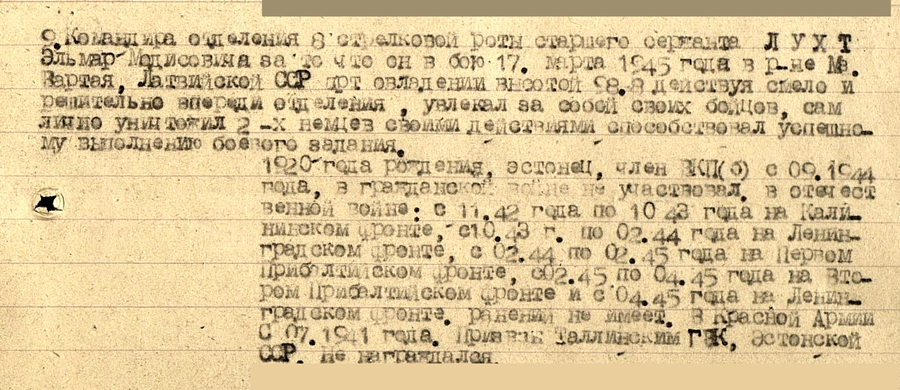 9. Командира отделения 8 стрелковой роты старшего сержанта Л У Х Т
Эльмар Модисовича за то что он в бою 17. марта 1945 года в р-не Мз.
Вартая, Латвийской ССР при овладении высотой 98.8 действуя смело и
решительно впереди отделения , увлекал за собой своих бойцов, сам
лично уничтожил 2 -х немцев своими действиями способствовал успешно-
му выполнению боевого задания.
1920 года рождения, эстонец, член ВКП(б) с 09.1944
года, в гражданской войне не участвовал. в отечест
венной войне: с 11.42 года по 10 43 года на Кали-
нинском фронте, с10.43 г. по 02.44 года на Ленин-
градском фронте, с 02.44 по 02.45 года на Первом
Прибалтийском фронте, с02.45 по 04.45 года на Вто-
ром Прибалтийском фронте и с 04.45 года на Ленин-
градском фронте. ранений не имеет. В Красной Армии
С 07.1941 года. Призван Таллинским ГВК, Эстонской
ССР. Не награждался.